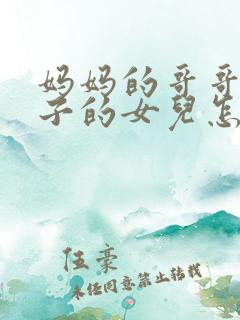 妈妈的哥哥
子的女兒怎
伍豪
未经同意禁止转载